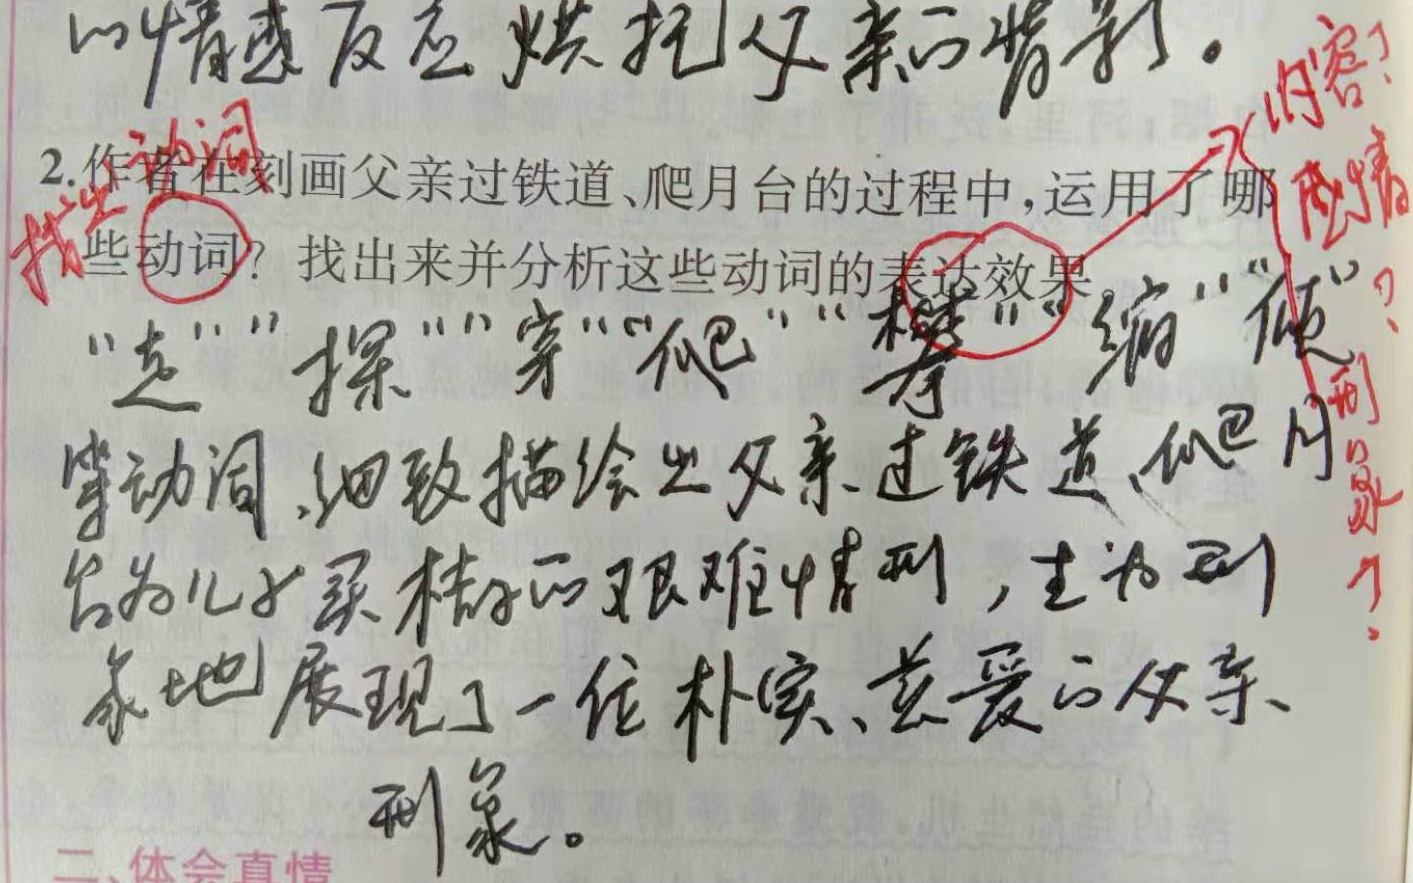 的情感反应烘托父亲的背影。
找出动词
2.作者在刻画父亲过铁道、爬月台的过程中,运用了哪
些动词? 找出来并分析这些动词的表达效果。
内容?
感情?
形象?
“走”“探”“穿”“爬”“攀”“缩”“倾”
等动词,细致描绘出父亲过铁道、爬月
台为儿子买桔子的艰难情形,生动形
象地展现了一位朴实、慈爱的父亲
形象。
二、体会真情